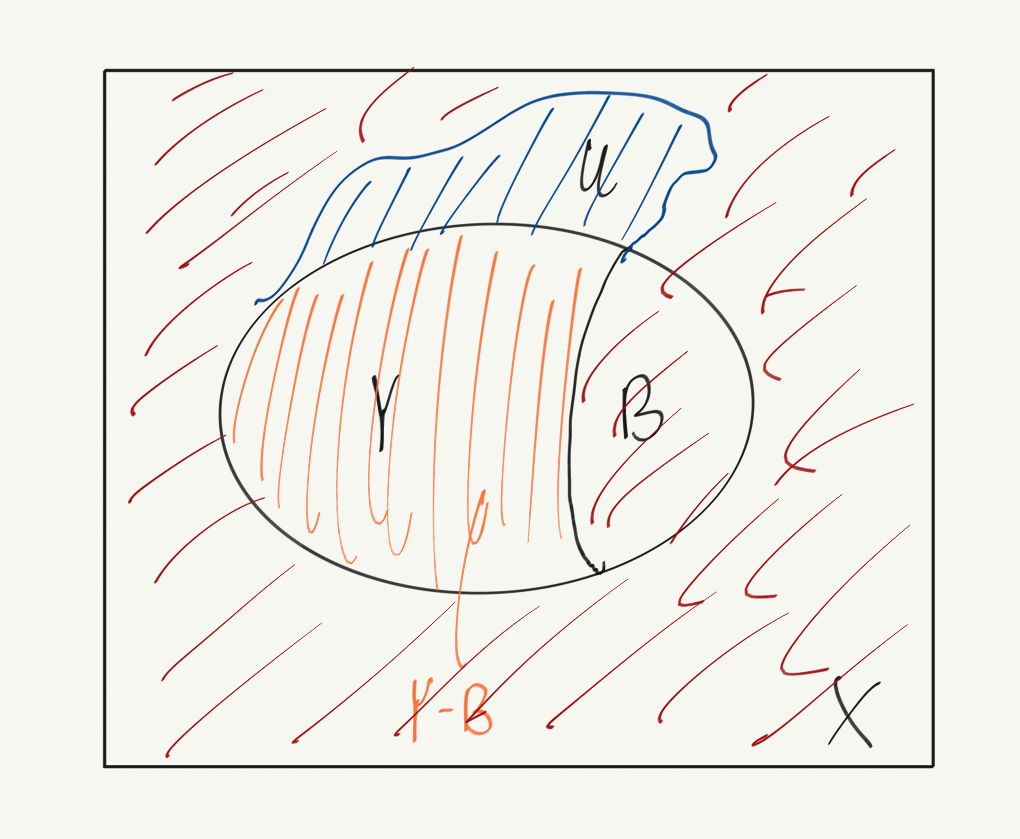 U
Y
B
Y-B
X